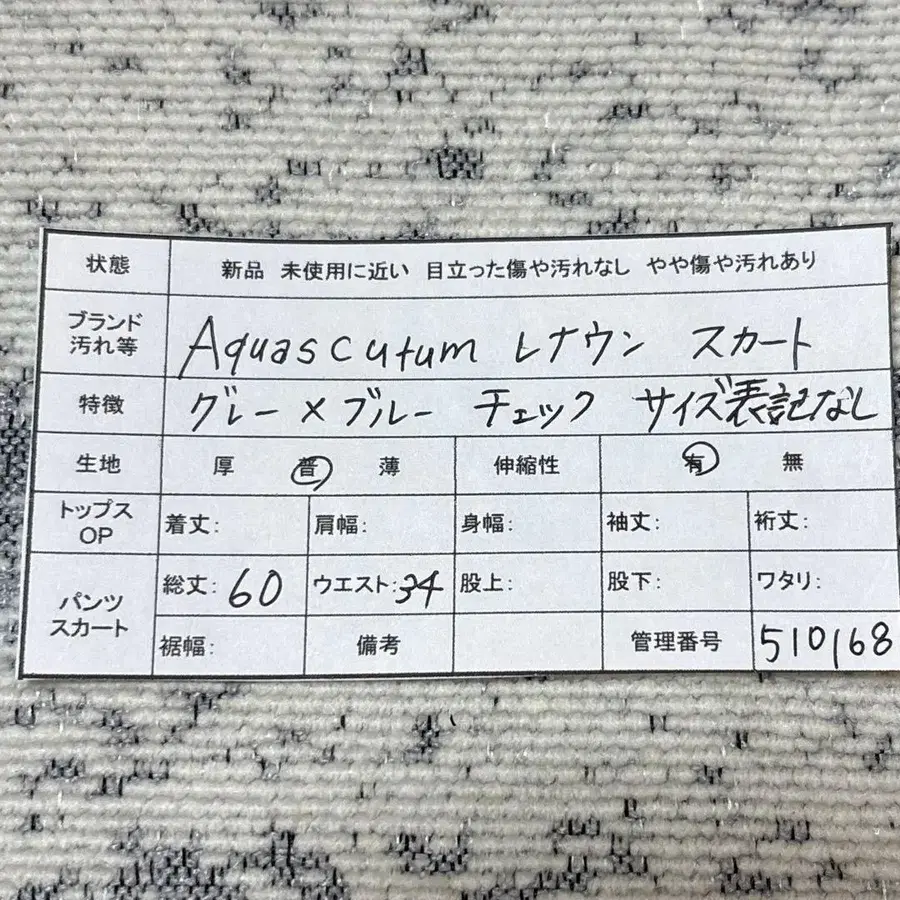 状態 新品 未使用に近い 目立った傷や汚れなし やや傷や汚れあり
ブランド
汚れ等
Aquascutum レナウン スカート
特徴 グレー×ブルー チェック サイズ表記なし
生地 厚 普 薄 伸縮性 有 無
トップス
OP
着丈: 肩幅: 身幅: 袖丈: 裄丈:
パンツ
スカート
総丈: 60 ウエスト: 34 股上: 股下: ワタリ:
裾幅: 備考 管理番号 510168